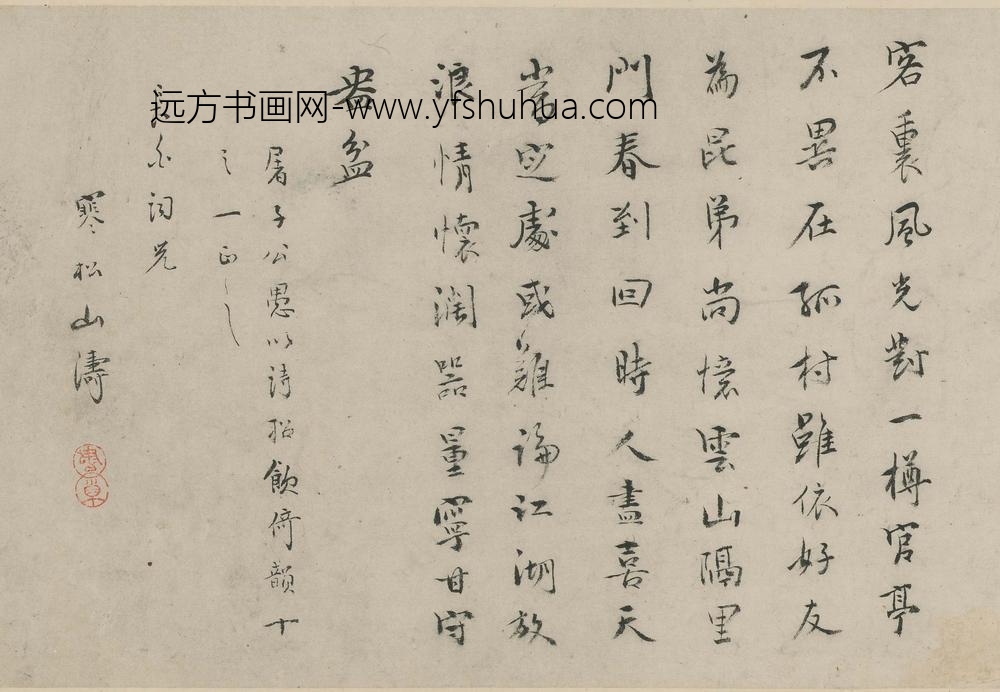 客裏風光對一樽官亭
不異在孤村雖依好友
為昆弟尚憶雲山隔里
門春到回時人盡喜天
當定處或難論江湖放
浪情懷濶器量寧甘守
盎盆
屠子公愚以詩招飲倚韻十
之一正之
詞兄
寒松山濤
远方书画网-www.yfshuhua.com